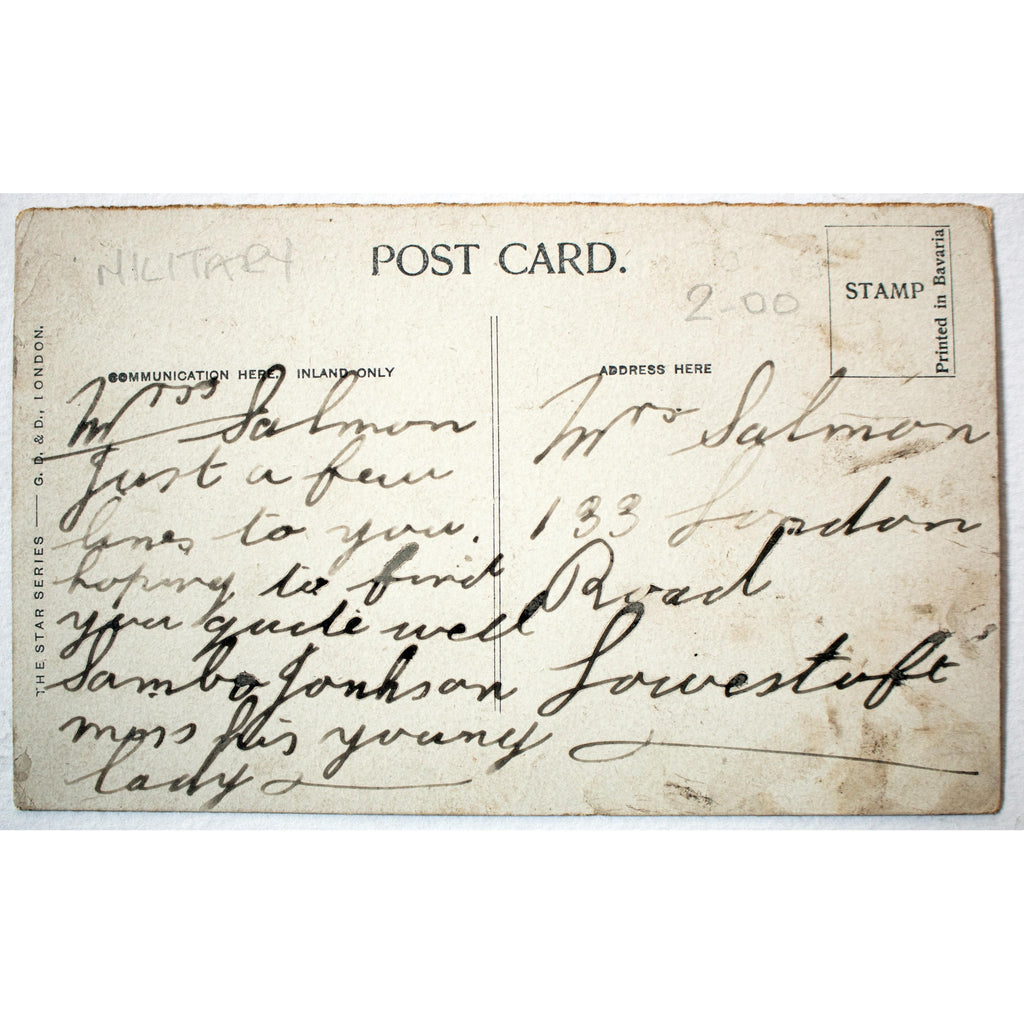 MILITARY
POST CARD.
2-00
STAMP
Printed in Bavaria
THE STAR SERIES — G. D. & D., LONDON.
COMMUNICATION HERE. INLAND ONLY
ADDRESS HERE
Mrss Salmon
Just a few
lines to you.
hoping to find
you quite well
Sambo Jonhson
miss his young
lady
Mrs Salmon
133 London
Road
Lowestoft